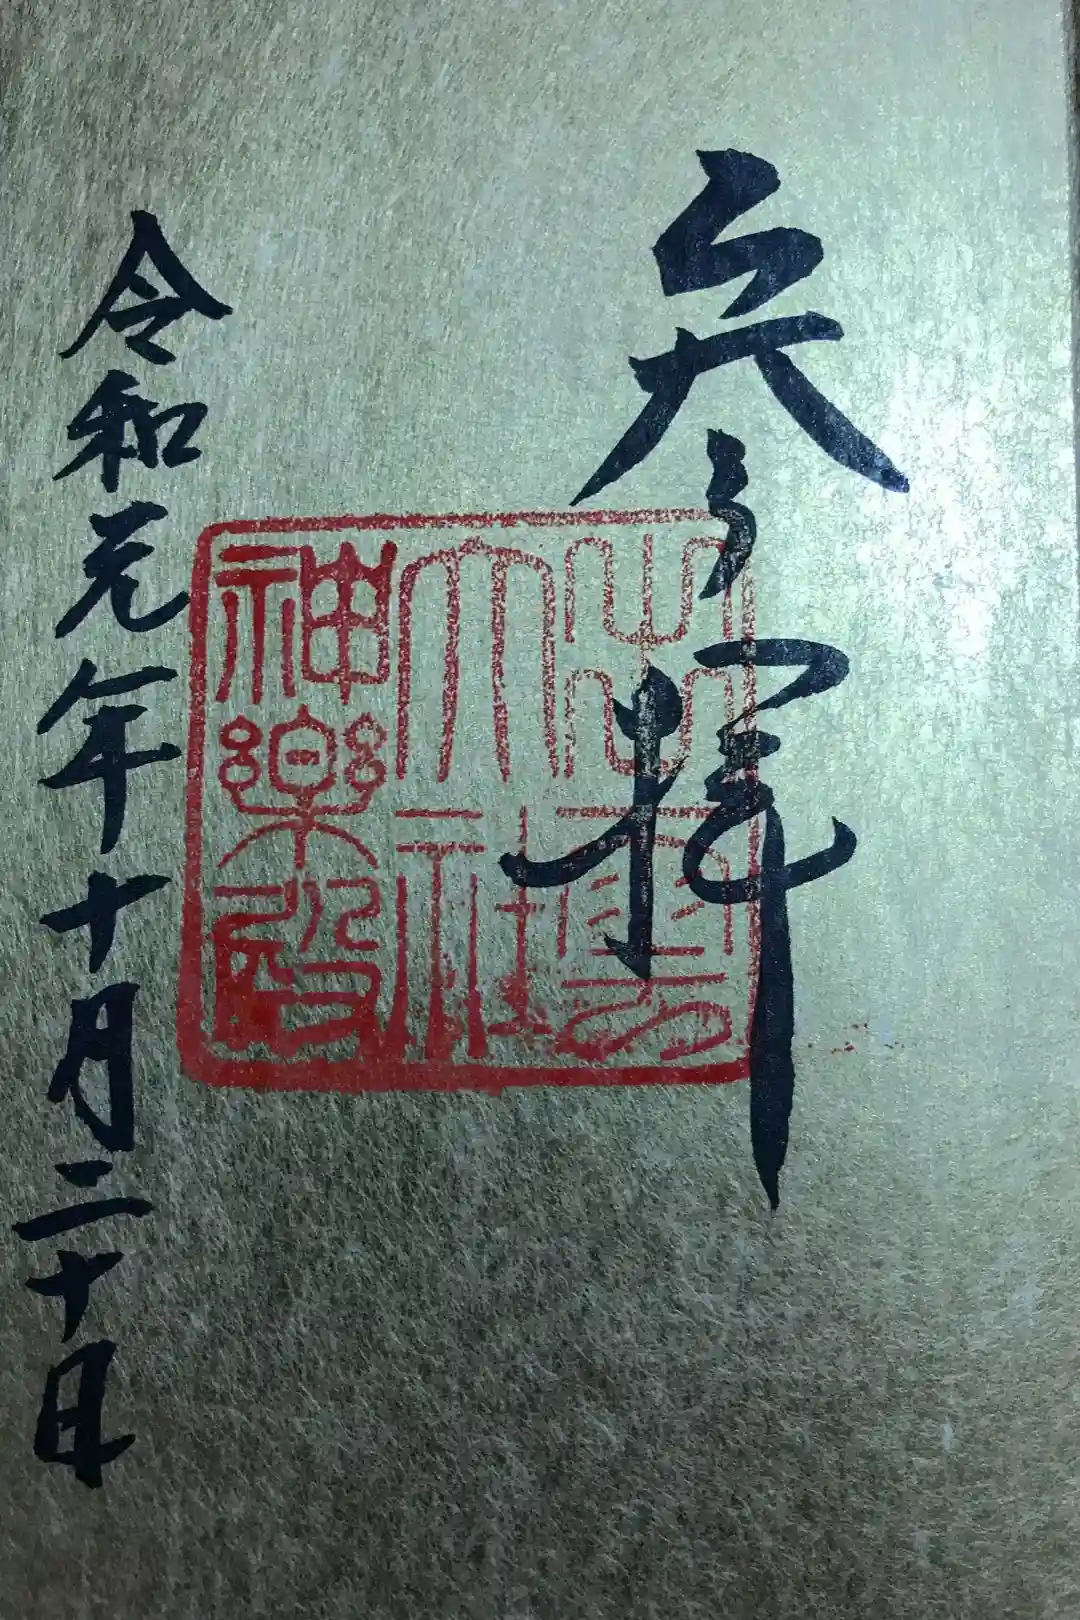 参拝
出雲
大社
神楽殿
令和元年十月二十日